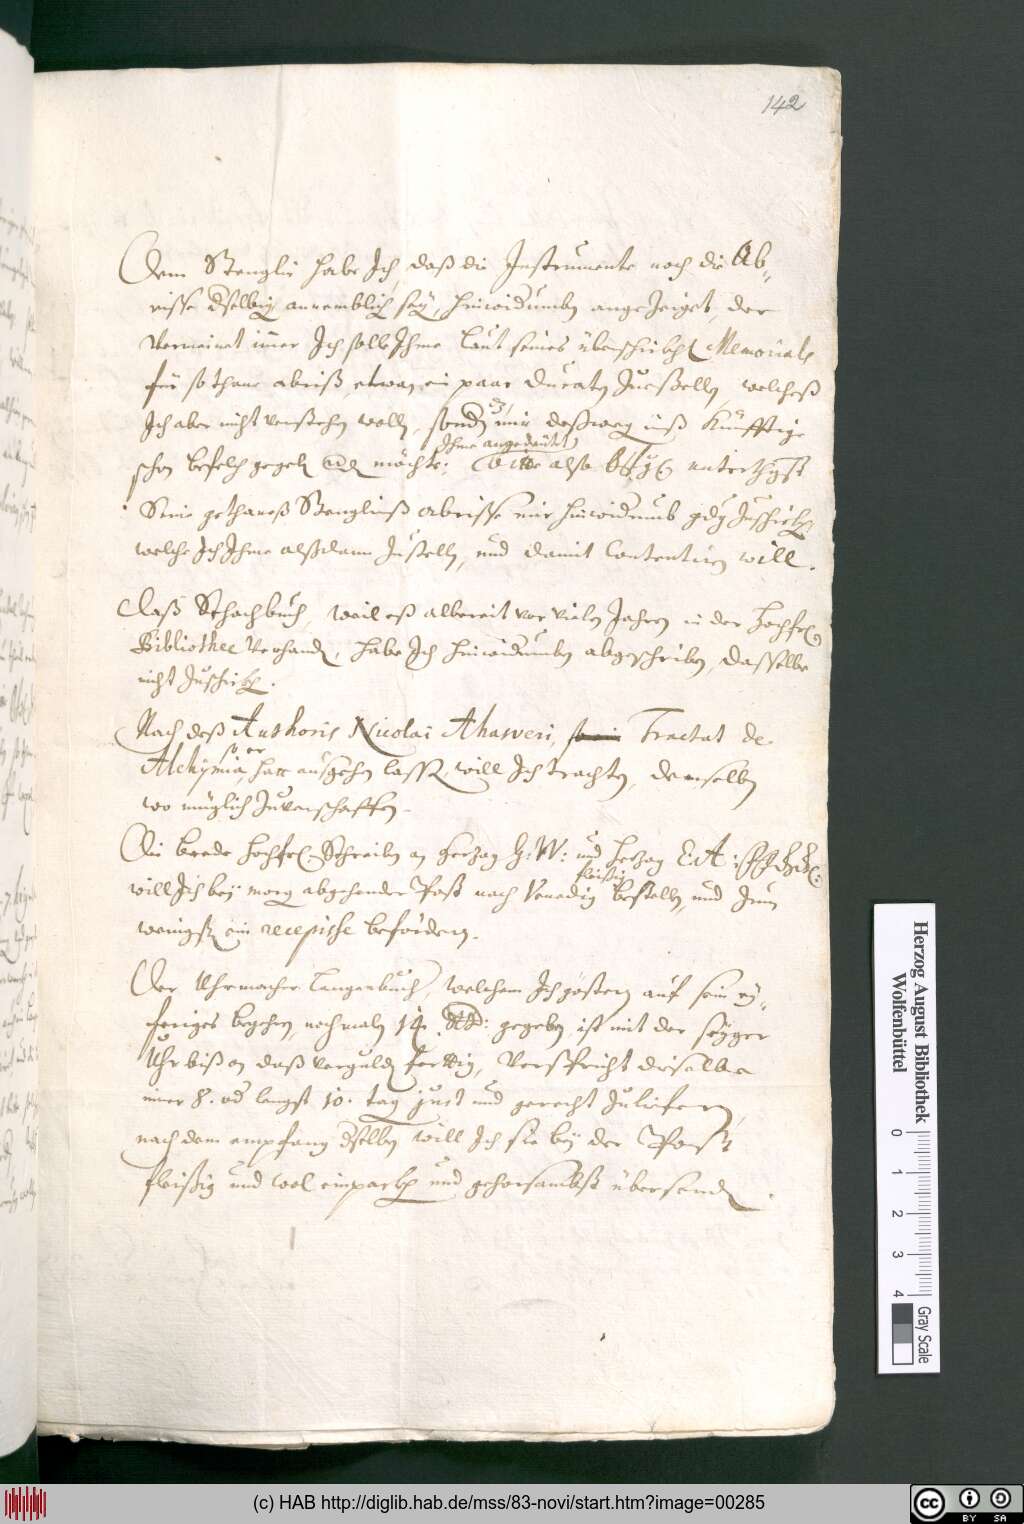 142
Dem Stenglin habe Ich, daß die Instrumente noch die Ab-
risse deßelbigen annemblich sey, hinwiderumben angezeiget, der
Vermeinet immer Ich solle Ihme laut seines überschickhten Memorials
für sothane abriß, etwan ein paar Ducaten Zuestellen, welcheß
Ich aber nicht verstehen wollen, sondern mir deßwegen künfftige
schon befelch gegeben werden möchte; Ihme angedeutet, Bitte also unterthgst
Seine gethaneß Stengliniß abrisse mir hinwiderumb gdg Zuschickhen
welche Ich Ihme alßdann Zustellen, und damit Contentiren will.
Daß Schachbuch, weil eß albereit vor vielen Jahren in der Hochfr.
Bibliothec Verhanden, habe Ich hinwiderumben abgeschriben, dasselbe
nicht Zuschickhen.
Nach deß Authoris Nicolai Ahasveri, Tractat de
Alchymia, so er hatt außgehen lassen, will Ich trachten, denselben
wo müglich Zuverschaffen.
Die beede hochfr. Schreiben an Herzog H: W: und Herzog
will Ich bey morgen abgehender Post nach Venedig fleißig bestellen, und Zum
wenigsten ein recepisse befördern.
Der Uhrmacher Langenbuch, welchem Ich gösteren auf sein ey-
feriges begehren, nochmalen 14. gegeben, ist mit der
Uhr biß an daß verguldten ferttig, Verspricht dieselbe
inner 8. od langst 10. tag just und gerecht Zuliefern,
nach dem empfang deßelben will Ich sie bey der Post
fleißig und wol einpackhen und gehorsambst übersenden.
Herzog August Bibliothek
Wolfenbüttel
0 1 2 3 4
Gray Scale
(c) HAB http://diglib.hab.de/mss/83-novi/start.htm?image=00285
cc BY SA